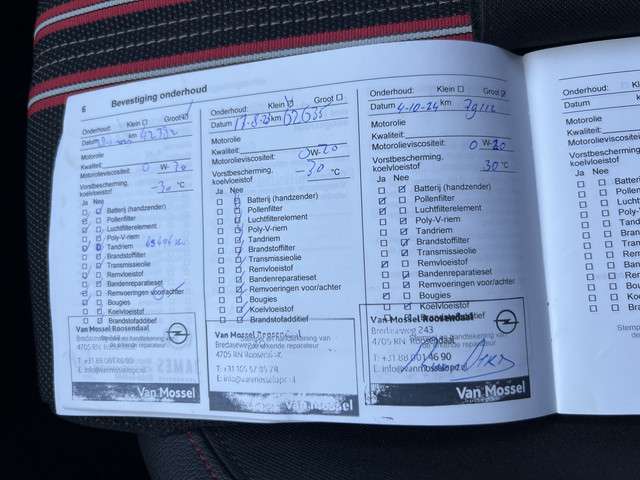 6 Bevestiging onderhoud
Onderhoud: Klein ☐ Groot ☑
Datum km 42332
Motorolie
Kwaliteit:
Motorolieviscositeit: 0 W-20
Vorstbescherming, koelvloeistof -30 °C
Ja Nee
Batterij (handzender)
Pollenfilter
Luchtfilterelement
Poly-V-riem
Tandriem
Brandstoffilter
Transmissieolie
Remvloeistof
Bandenreparatieset
Remvoeringen voor/achter
Bougies
Koelvloeistof
Brandstofadditief
Van Mossel Roosendaal
4705 RN
Van Mossel
Onderhoud: Klein ☑ Groot ☐
Datum 17-8-23 km 62635
Motorolie
Kwaliteit:
Motorolieviscositeit: 0 W-20
Vorstbescherming, koelvloeistof -30 °C
Ja Nee
Batterij (handzender)
Pollenfilter
Luchtfilterelement
Poly-V-riem
Tandriem
Brandstoffilter
Transmissieolie
Remvloeistof
Bandenreparatieset
Remvoeringen voor/achter
Bougies
Koelvloeistof
Brandstofadditief
Van Mossel Roosendaal
4705 RN
Van Mossel
Onderhoud: Klein ☐ Groot ☑
Datum 4-10-24 km
Motorolie
Kwaliteit:
Motorolieviscositeit: 0 W-20
Vorstbescherming, koelvloeistof 30 °C
Ja Nee
Batterij (handzender)
Pollenfilter
Luchtfilterelement
Poly-V-riem
Tandriem
Brandstoffilter
Transmissieolie
Remvloeistof
Bandenreparatieset
Remvoeringen voor/achter
Bougies
Koelvloeistof
Brandstofadditief
Van Mossel Roosendaal
Bredaseweg 243
4705 RN Roosendaal
Van Mossel
Onderhoud:
Datum
Motorolie
Kwaliteit:
Ja